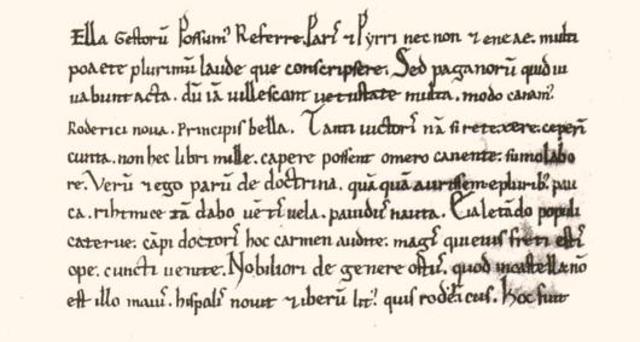 Ella Gestorū possum' Referre. Pari' ⁊ Pyrri nec non ⁊ eneae. multi
poaete plurimū laude que conscripsere. Sed paganorū quid iu
uabunt acta. dū iā uillescant uetustate multa. modo canam'
Roderici noua. Principis bella. Tanti uictori' nā si retexere ceperī
cunta. non hec libri mille. capere possent omero canente. sumo labo
re. Verū ⁊ ego parū de doctrina. quā quā aurissem e plurib'. pau
ca. rihtmice tā dabo uēti' uela. pauidu' nauta. Eia letādo populi
caterue. cāpi doctori' hoc carmen audite. magi' qui eius freti esti'
ope. cuncti uenite. Nobiliori de genere ortu'. quod in castella nō
est illo maiu'. hispali' nouit ⁊ iberū lit' quis rodericus. Hoc fuit